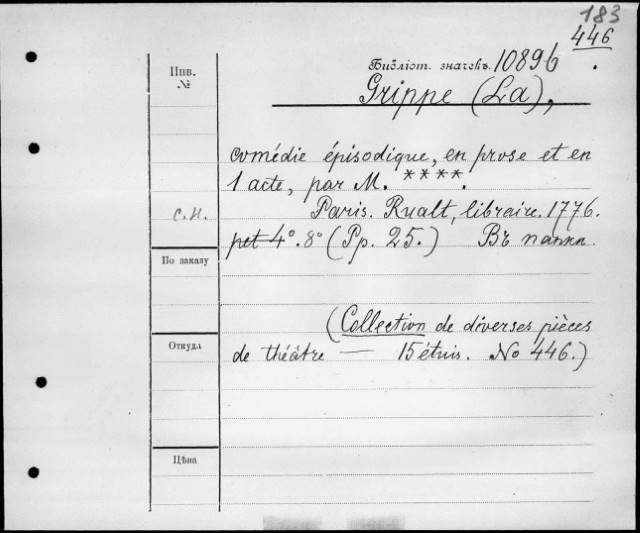 183
446
Инв.
№
Библіот. значекъ. 10896
Grippe (La),
comédie épisodique, en prose et en
1 acte, par M. ****.
С.И.
Paris. Rualt, libraire. 1776.
pet 4°. 8° (Pp. 25.) Въ папки.
По заказу
(Collection de diverses pièces
Откуда
de théâtre — 15 étuis. No 446.)
Цѣна